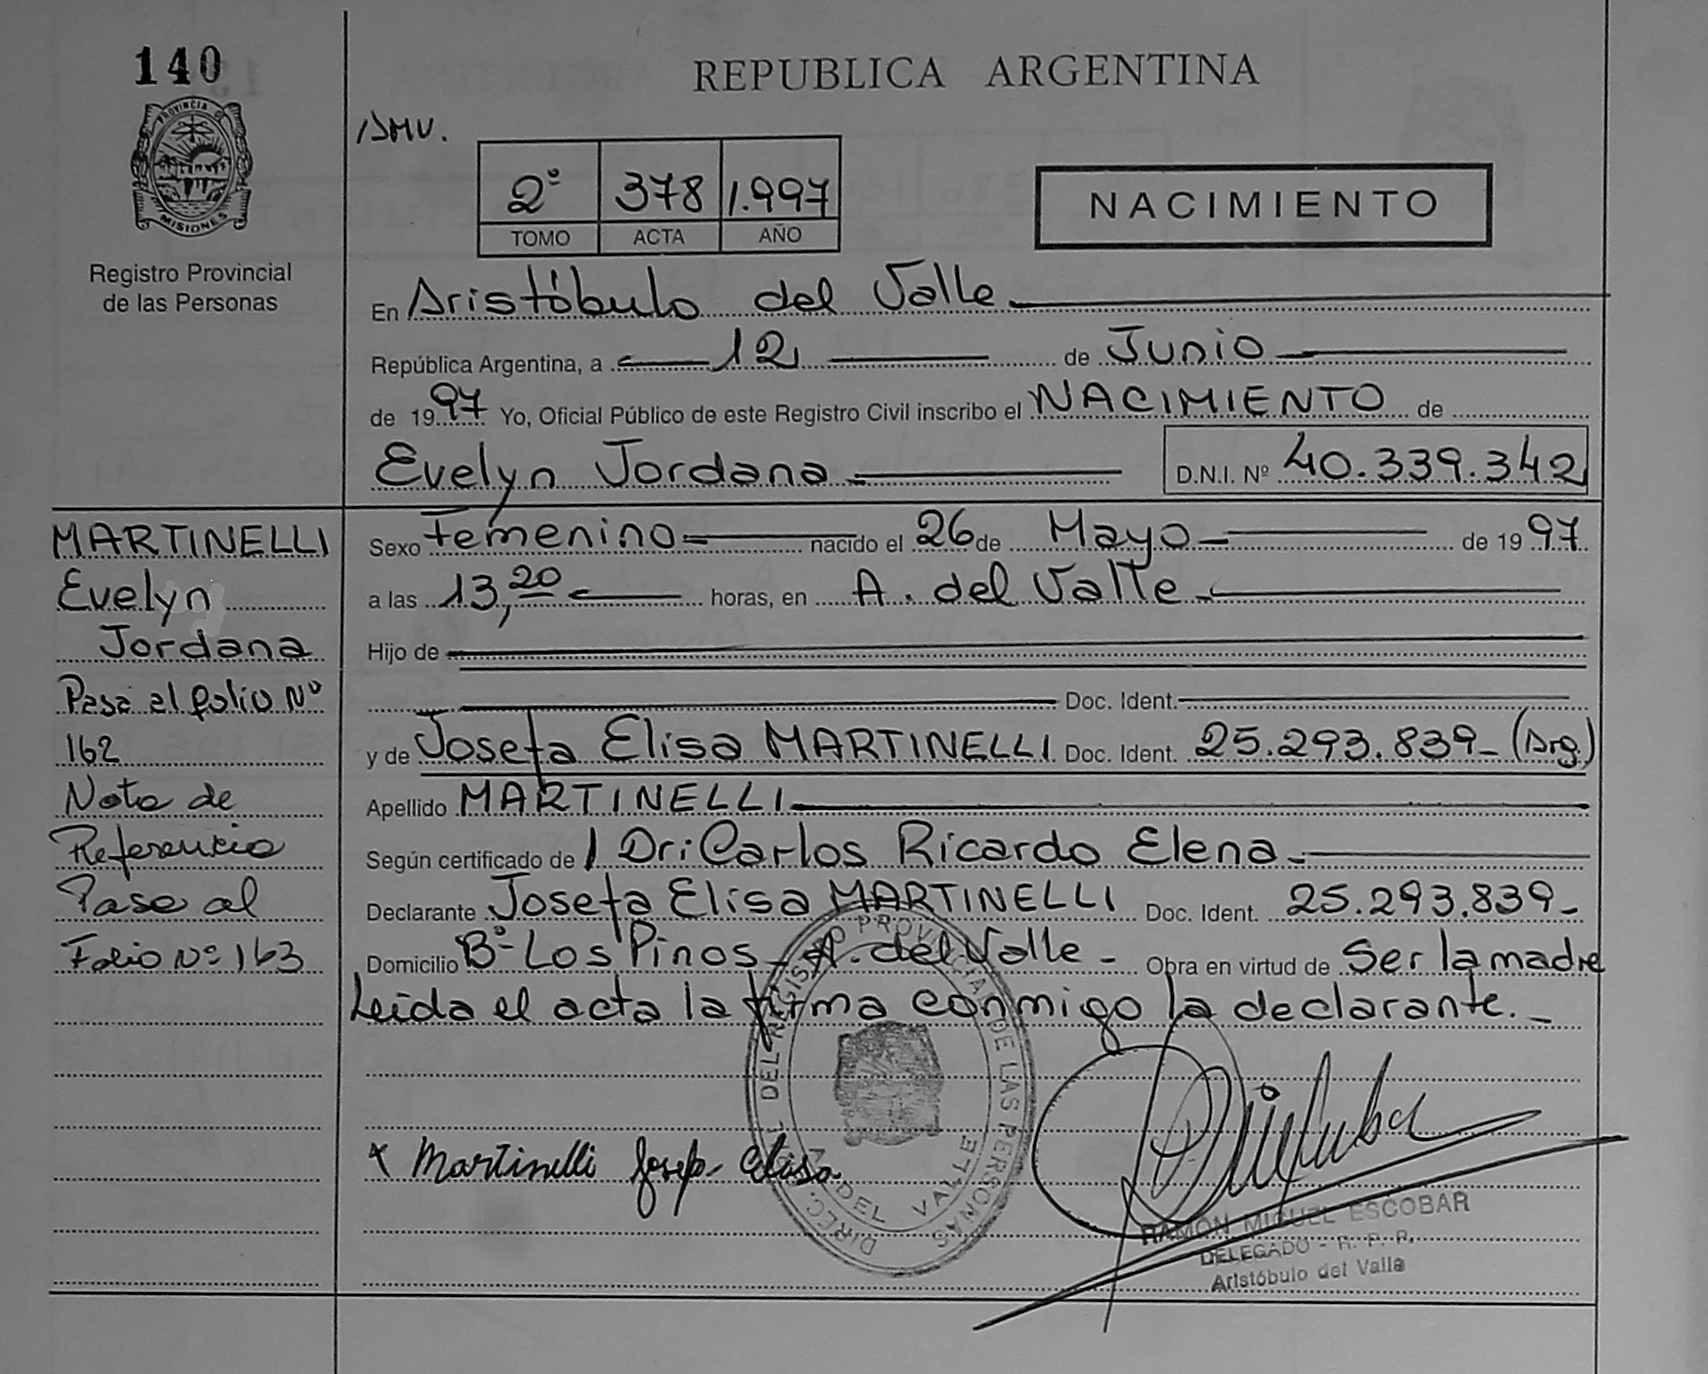 140
REPUBLICA ARGENTINA
PROVINCIA D
MISIONES
Registro Provincial
de las Personas
2º 378 1.997
TOMO ACTA AÑO
NACIMIENTO
En Aristóbulo del Valle
República Argentina, a 12 de Junio
de 1997 Yo, Oficial Público de este Registro Civil inscribo el NACIMIENTO de
Evelyn Jordana D.N.I. Nº 40.339.342
MARTINELLI
Evelyn
Jordana
Pasa al folio Nº
162
Nota de
Referencia
Pase al
Folio Nº 163
Sexo Femenino nacido el 26 de Mayo de 1997
a las 13,20 horas, en A. del Valle
Hijo de
Doc. Ident.
y de Josefa Elisa MARTINELLI Doc. Ident. 25.293.839_ (Arg.)
Apellido MARTINELLI
Según certificado de Dr: Carlos Ricardo Elena
Declarante Josefa Elisa MARTINELLI Doc. Ident. 25.293.839_
Domicilio Bº Los Pinos - A. del Valle - Obra en virtud de Ser la madre
Leida el acta la firma conmigo la declarante._
x Martinelli Josefa Elisa
DIREC. DEL REGISTRO PROVINCIAL DE LAS PERSONAS
DEL VALLE
RAMON MIGUEL ESCOBAR
DELEGADO - R. P. P.
Aristóbulo del Valle